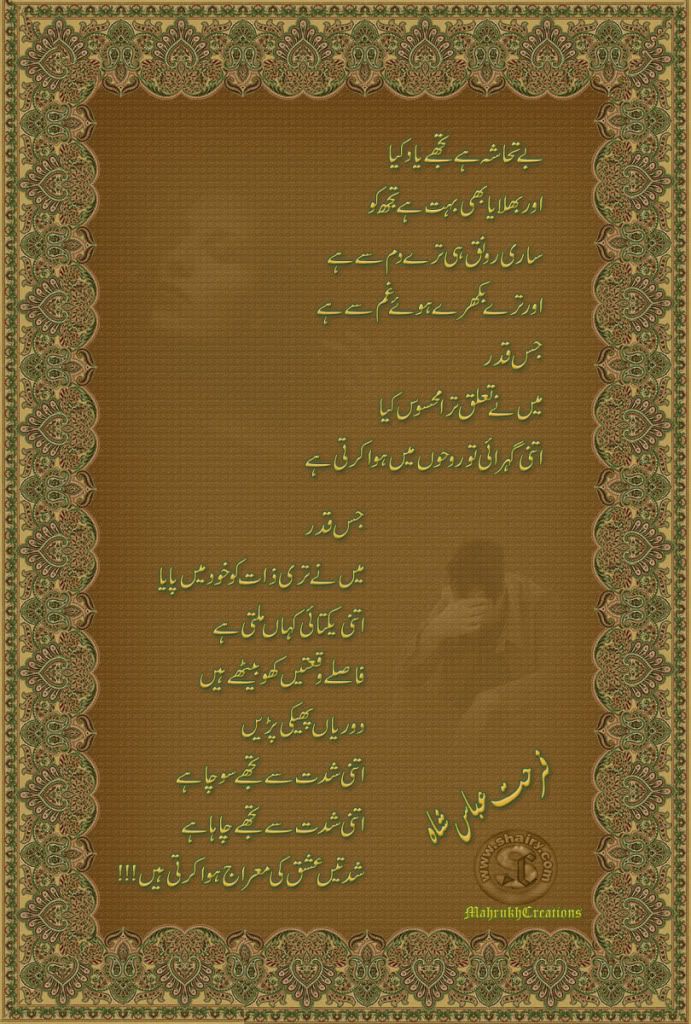 بے تحاشہ ہے تجھے یاد کیا
اور بھلایا بھی بہت ہے تجھ کو
ساری رونق ہی ترے دم سے ہے
اور ترے بکھرے ہوئے غم سے ہے
جس قدر
میں نے تعلق ترا محسوس کیا
اتنی گہرائی تو روحوں میں ہوا کرتی ہے
جس قدر
میں نے تری ذات کو خود میں پایا
اتنی یکتائی کہاں ملتی ہے
فاصلے وقعتیں کھو بیٹھے ہیں
دوریاں پھیکی پڑیں
اتنی شدت سے تجھے سوچا ہے
اتنی شدت سے تجھے چاہا ہے
شدتیں عشق کی معراج ہوا کرتی ہیں!!!
فرحت عباس شاہ
www.shairy.com
MahrukhCreations